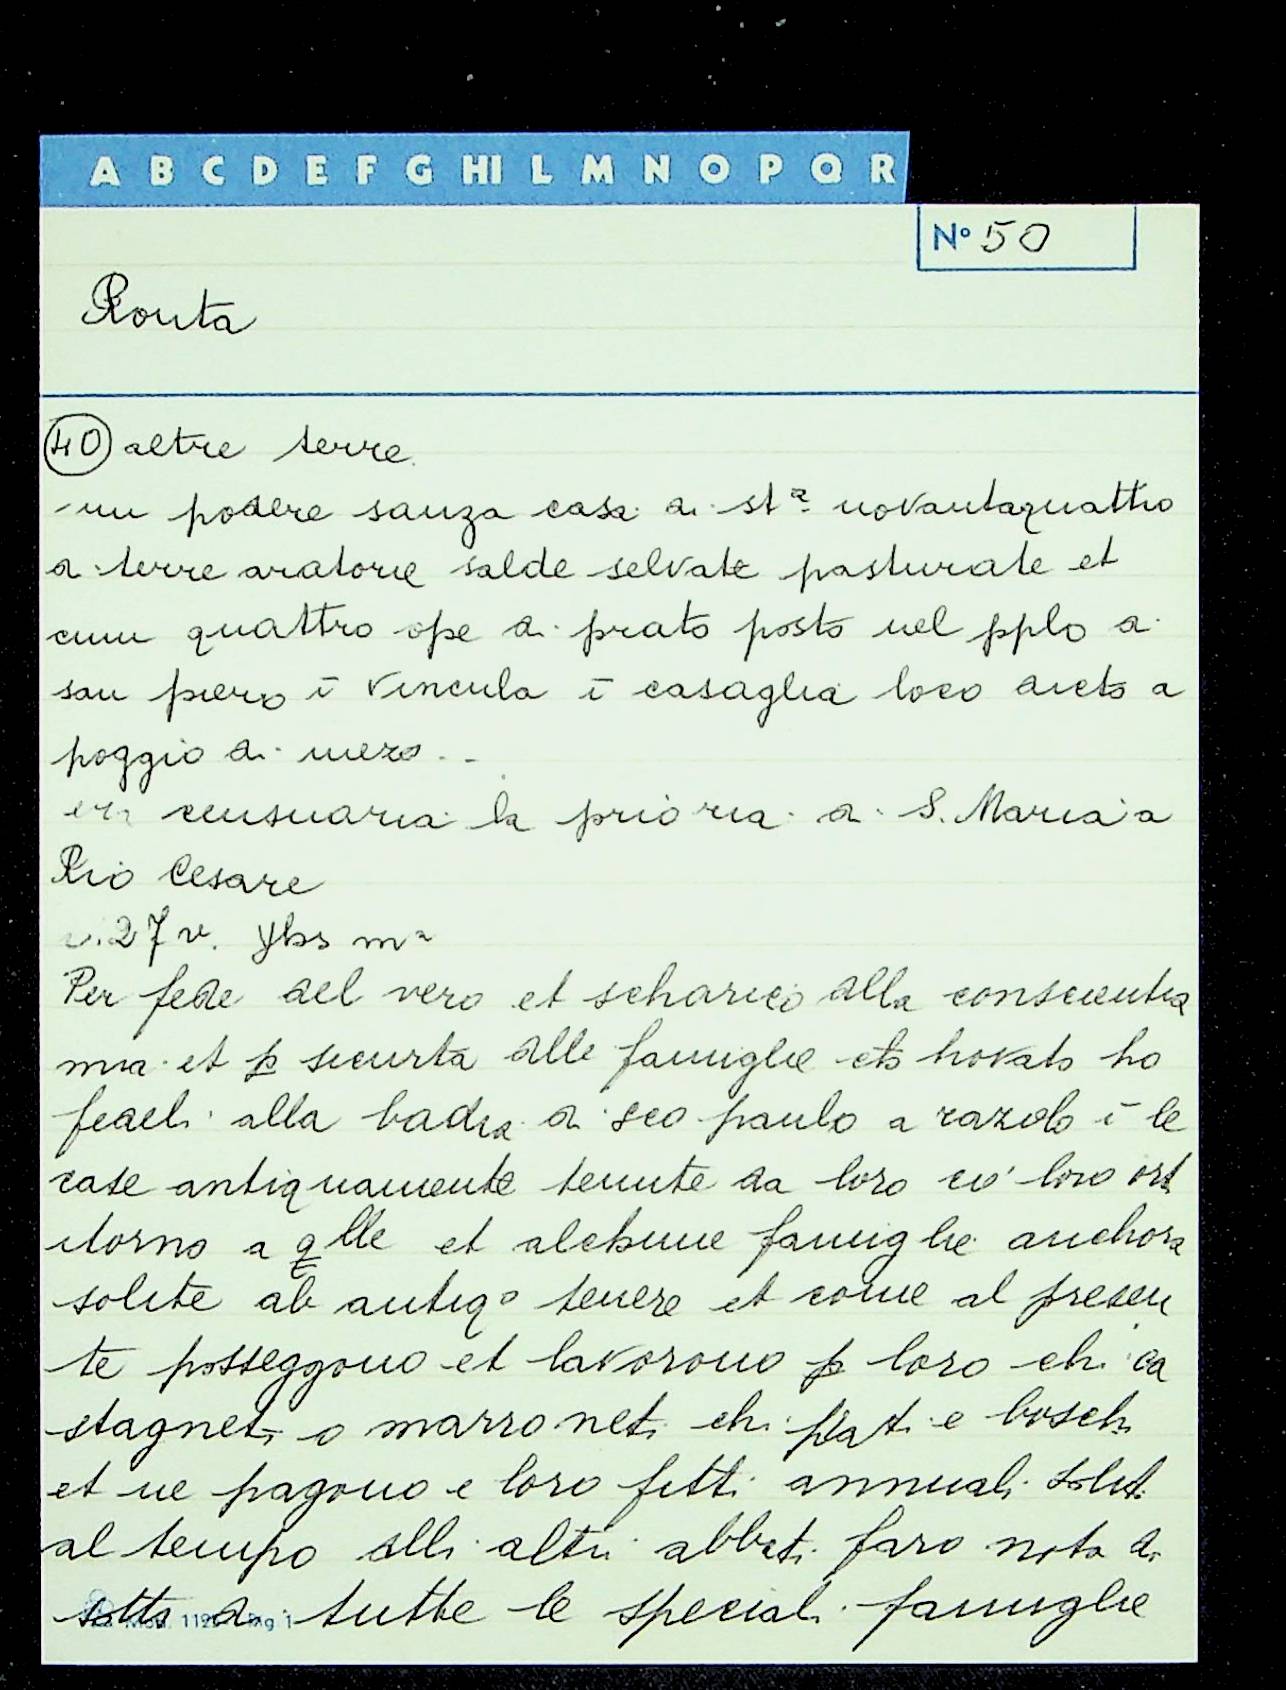 A B C D E F G HI L M N O P Q R
N° 50
Ronta
40 altre terre.
un podere sanza casa di stª novantaquattro
di terre aratorie salde selvate pasturate et
cum quattro ope di prato posto nel pplo di
san piero ī Vincula ī casaglia loco dicto a
poggio di mezo..
era censuaria la prioria di S. Maria a
Rio Cesare
c. 27 v. yhs mª
Per fede del vero et scharico dlla conscientia
mia et p sicurta dlle famiglie cħ trovato ho
fedeli alla badia di sco paulo a razolo ī le
case antiquamente tenute da loro cō loro ort
itorno a qlle et alchune famiglie anchora
solite ab antiqº tenere et come al presen
te posseggono et lavorono p loro chi ca
stagneti o marroneti chi prati e boschi
et ne pagono e loro fitti annuali soluti
al tempo dlli altri abbati faro nota di
sotto di tutte le speciali famiglie